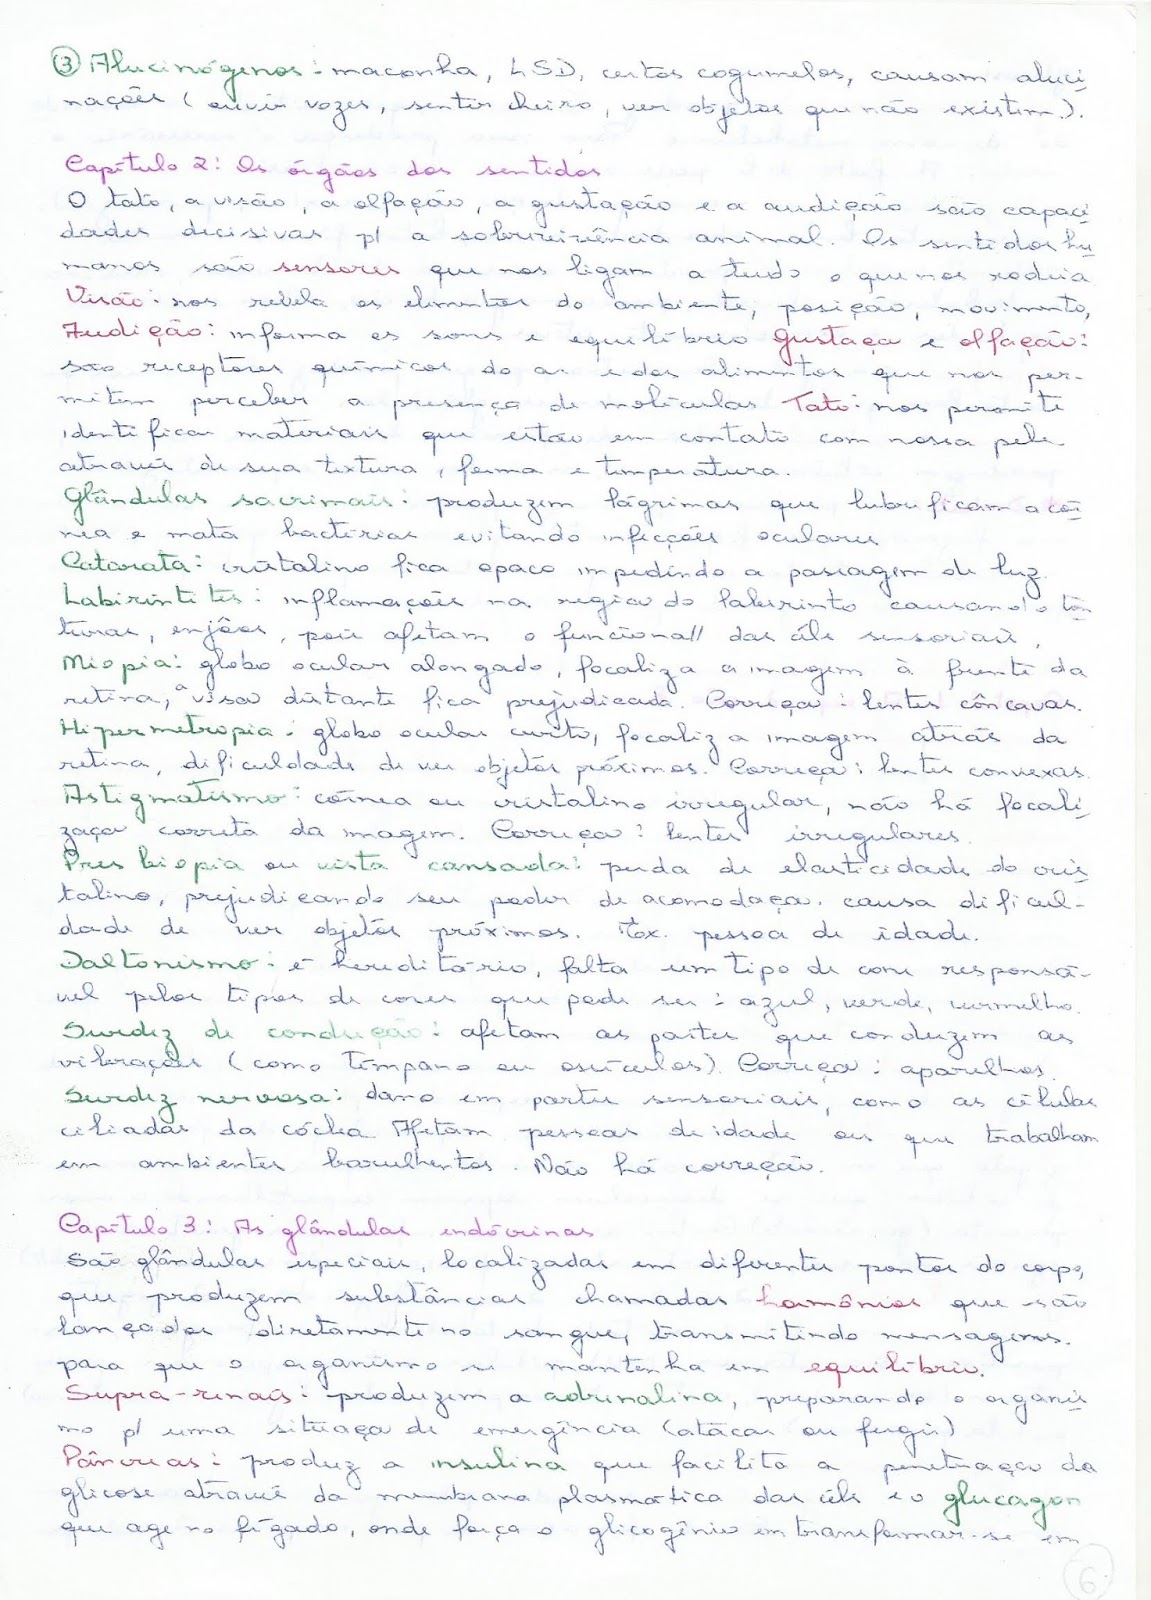 ③ Alucinógenos: maconha, LSD, certos cogumelos, causam aluci-
nações (ouvir vozes, sentir cheiro, ver objetos que não existem).
Capítulo 2: Os órgãos dos sentidos
O tato, a visão, a olfação, a gustação e a audição são capaci-
dades decisivas p/ a sobrevivência animal. Os sentidos hu-
manos são sensores que nos ligam a tudo o que nos rodeia
Visão: nos revela os elementos do ambiente, posição, movimento,
Audição: informa os sons e equilíbrio Gustaça e olfação:
são receptores químicos do ar e dos alimentos que nos per-
mitem perceber a presença de moléculas Tato: nos permite
identificar materiais que estão em contato com nossa pele
através de sua textura, forma e temperatura.
Glândulas sacrimais: produzem lágrimas que lubrificam a cór-
nea e mata bactérias evitando infecções oculares
Catarata: cristalino fica opaco impedindo a passagem de luz.
Labirintites: inflamações na região do labirinto causando ton-
turas, enjôos, pois afetam o funciona// das céls sensoriais,
Miopia: globo ocular alongado, focaliza a imagem à frente da
retina, a visão distante fica prejudicada. Correção: lentes côncavas.
Hipermetropia: globo ocular curto, focaliza imagem atrás da
retina, dificuldade de ver objetos próximos. Correção: lentes convexas.
Astigmatismo: córnea ou cristalino irregular, não há focali-
zação correta da imagem. Correção: lentes irregulares.
Presbiopia ou vista cansada: perda de elasticidade do cris-
talino, prejudicando seu poder de acomodação. causa dificul-
dade de ver objetos próximos. Ex. pessoa de idade.
Daltonismo: é hereditário, falta um tipo de cone responsá-
vel pelos tipos de cores que pode ser: azul, verde, vermelho.
Surdez de condução: afetam as partes que conduzem as
vibrações (como tímpano ou ossículos). Correção: aparelhos.
Surdez nervosa: dano em partes sensoriais, como as células
ciliadas da cóclea. Afetam pessoas de idade ou que trabalham
em ambientes barulhentos. Não há correção.
Capítulo 3: As glândulas endócrinas
São glândulas especiais, localizadas em diferentes pontos do corpo,
que produzem substâncias chamadas hormônios que são
lançados diretamente no sangue, transmitindo mensagens.
para que o organismo se mantenha em equilíbrio.
Supra-renais: produzem a adrenalina, preparando o organis-
mo p/ uma situação de emergência (atacar ou fugir)
Pâncreas: produz a insulina que facilita a penetração da
glicose através da membrana plasmática das céls e o glucagon
que age no fígado, onde força o glicogênio em transformar-se em
6